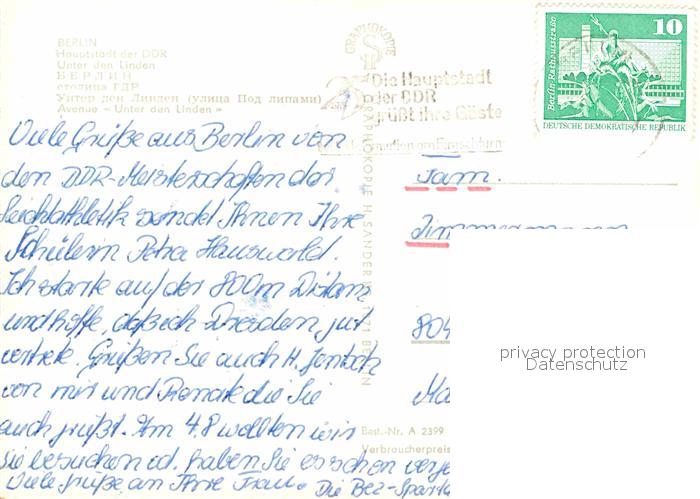 BERLIN
Hauptstadt der DDR
Unter den Linden
БЕРЛИН
столица ГДР
Унтер ден Линден (улица Под липами)
Avenue « Unter den Linden »
GRAPHOKOPIE
Die Hauptstadt
der DDR
grüßt ihre Gäste
10
Berlin, Rathausstraße
DEUTSCHE DEMOKRATISCHE REPUBLIK
GRAPHOKOPIE H. SANDER
Viele Grüße aus Berlin von
den DDR-Meisterschaften der
Leichtathletik sendet Ihnen Ihre
Schülerin Petra Hauswald.
Ich starte auf der 800m Distanz
und hoffe, daß ich Dresden gut
vertrete. Grüßen Sie auch H. Jentsch
von mir und Renate die Sie
auch grüßt. Am 4.8 wollten wir
Sie besuchen od. haben Sie es schon
Viele Grüße an Ihre Frau. Die Bez-
Fam.
Zimmermann
804
Best.-Nr. A 2399
Verbraucherpreis
privacy protection
Datenschutz